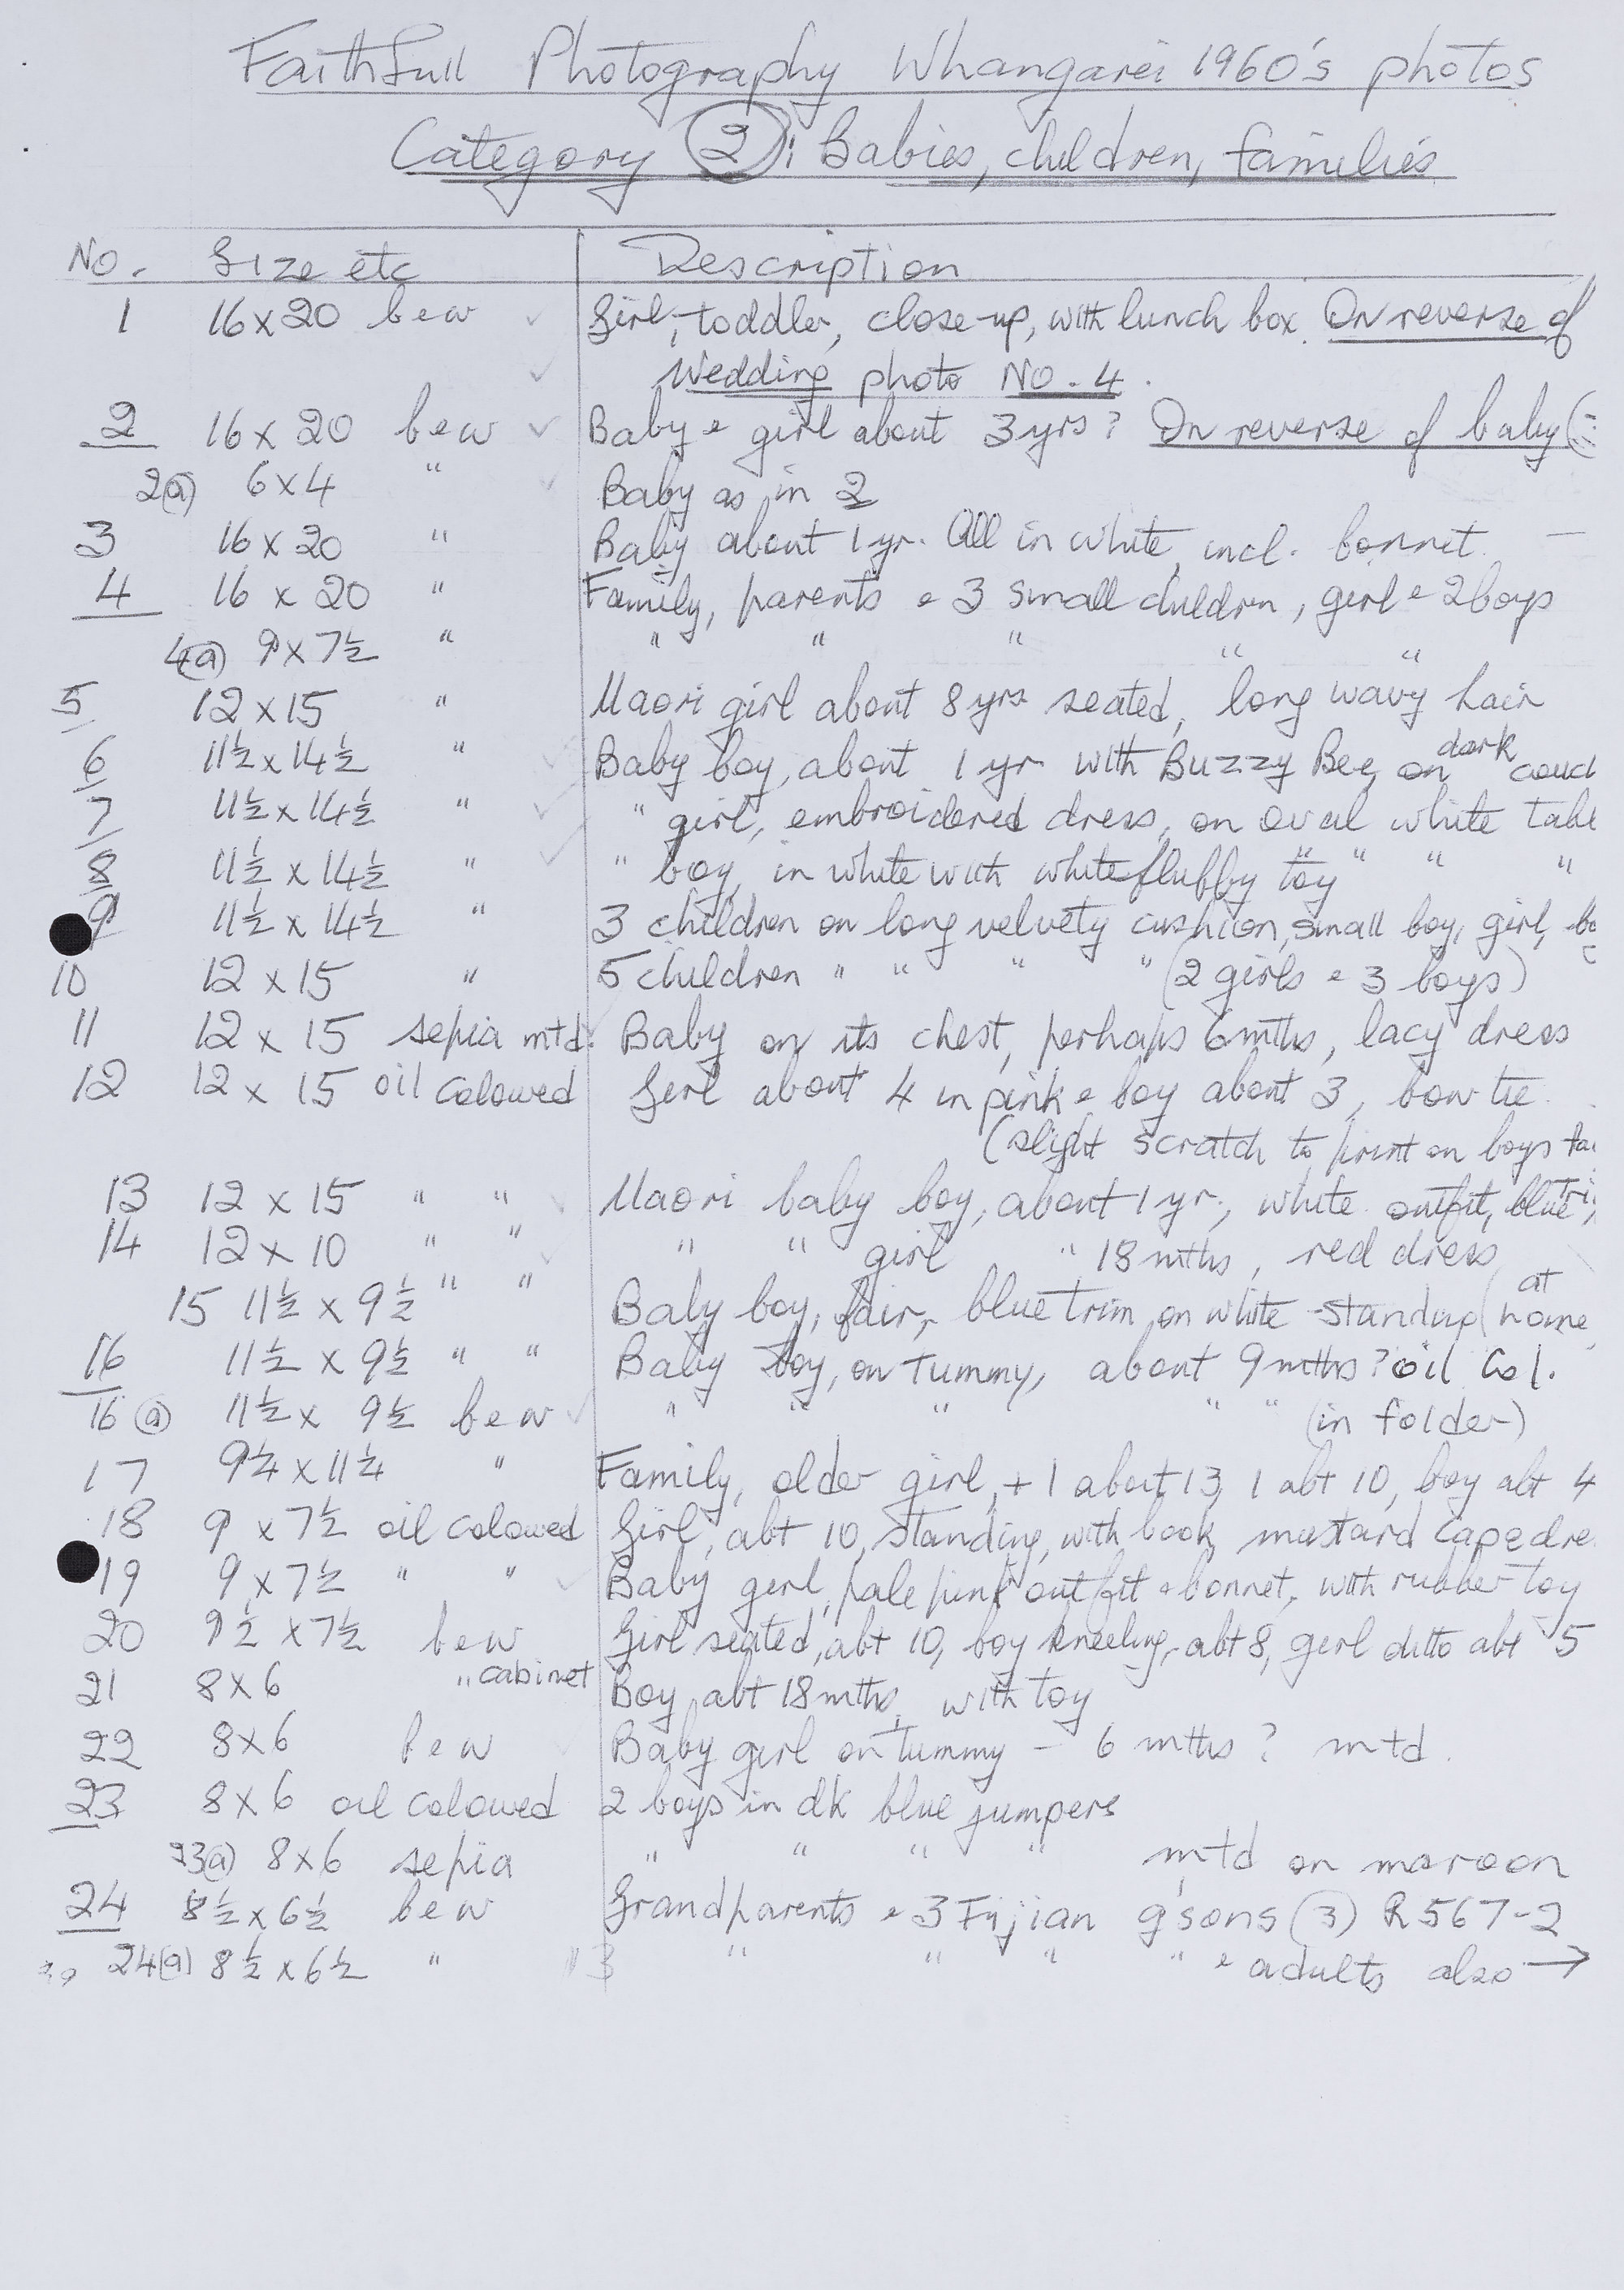 Faithfull Photography Whangarei 1960's photos
Category 2: Babies, children, families
No. Size etc Description
1 16 x 20 b e w Girl, toddler, close-up, with lunch box. On reverse of
Wedding photo No. 4.
2 16 x 20 b e w Baby e girl about 3 yrs? On reverse of baby (
2(a) 6 x 4 " Baby as in 2
3 16 x 20 " Baby about 1 yr. All in white, incl. bonnet. —
4 16 x 20 " Family, parents e 3 small children, girl e 2 boys
4(a) 9 x 7½ " " " " " "
5 12 x 15 " Maori girl about 8 yrs seated, long wavy hair
6 11½ x 14½ " Baby boy, about 1 yr with Buzzy Bee, on dark couc
7 11½ x 14½ " " girl, embroidered dress, on oval white tabl
8 11½ x 14½ " " boy, in white with white fluffy toy " " " "
9 11½ x 14½ " 3 children on long velvety cushion, small boy, girl, bo
10 12 x 15 " 5 children " " " " (2 girls e 3 boys)
11 12 x 15 sepia mtd. Baby on its chest, perhaps 6 mths, lacy dress
12 12 x 15 oil coloured Girl about 4 in pink e boy about 3, bow tie.
(slight scratch to print on boys fa
13 12 x 15 " " Maori baby boy, about 1 yr, white outfit, blue tri
14 12 x 10 " " " " girl " 18 mths, red dress
15 11½ x 9½ " " Baby boy, fair, blue trim on white - standing (at home
16 11½ x 9½ " " Baby boy, on tummy, about 9 mths? oil Col.
16 (a) 11½ x 9½ b e w " " " " " (in folder)
17 9¼ x 11¼ " Family, older girl, + 1 about 13, 1 abt 10, boy abt 4
18 9 x 7½ oil coloured Girl, abt 10, standing, with book, mustard cape dre
19 9 x 7½ " " Baby girl, pale pink outfit e bonnet, with rubber toy
20 9½ x 7½ b e w Girl seated, abt 10, boy kneeling, abt 8, girl ditto abt 5
21 8 x 6 " cabinet Boy, abt 18 mths, with toy
22 8 x 6 b e w Baby girl on tummy – 6 mths? mtd.
23 8 x 6 oil coloured 2 boys in dk blue jumpers
23(a) 8 x 6 sepia " " " " mtd on maroon
24 8½ x 6½ b e w Grandparents e 3 Fijian g'sons (3) R567-2
24(a) 8½ x 6½ " " 3 " " " " e adults also →